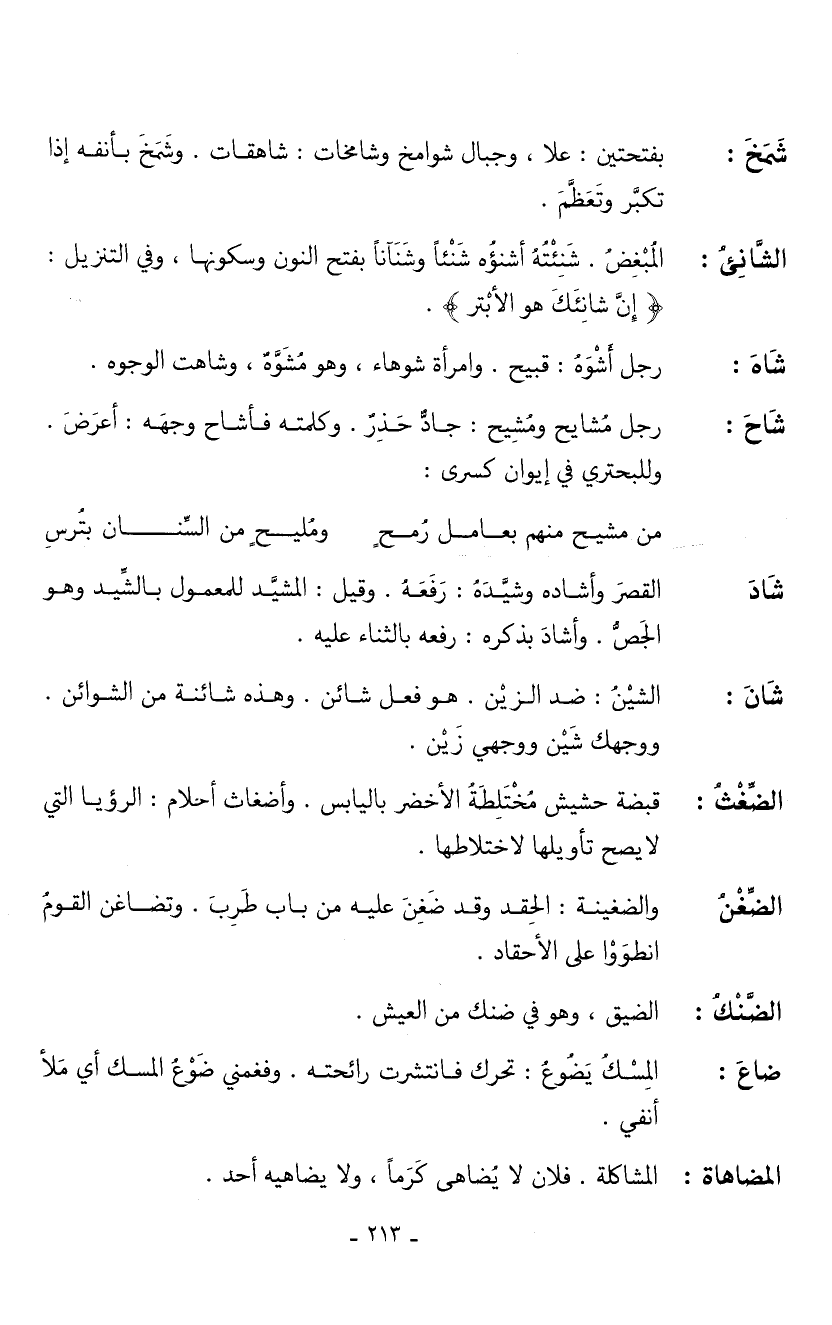 شَمَخَ : بفتحتين : علا ، وجبال شوامخ وشامخات : شاهقات . وشَمَخَ بأنفه إذا
تكبَّر وتَعَظَّمَ .
الشَّانِئُ : المُبْغِضُ . شَنِئْتُهُ أشنؤُه شَنْئاً وشَنَآناً بفتح النون وسكونها ، وفي التنزيل :
﴿ إنَّ شانِئَكَ هو الأبْتر ﴾ .
شَاهَ : رجل أَشْوَهُ : قبيح . وامرأة شوهاء ، وهو مُشَوَّهٌ ، وشاهت الوجوه .
شَاحَ : رجل مُشايح ومُشِيح : جادٌّ حَذِرٌ . وكلمته فأشاح وجهَه : أعرَضَ .
وللبحتري في إيوان كسرى :
من مشيح منهم بعامل رُمحٍ ومُليحٍ من السِّنان بتُرسِ
شَادَ القصرَ وأشاده وشيَّدَهُ : رَفَعَهُ . وقيل : المشيَّد للمعمول بالشِّيد وهو
الجَصُّ . وأشادَ بذكره : رفعه بالثناء عليه .
شَانَ : الشيْنُ : ضد الزيْن . هو فعل شائن . وهذه شائنة من الشوائن .
ووجهك شَيْن ووجهي زَيْن .
الضِّغْثُ : قبضة حشيش مُخْتَلِطَةُ الأخضر باليابس . وأضغاث أحلام : الرؤيا التي
لايصح تأويلها لاختلاطها .
الضِّغْنُ والضغينة : الحِقد وقد ضَغِنَ عليه من باب طَرِبَ . وتضاغن القومُ
انطوَوْا على الأحقاد .
الضَّنْكُ : الضيق ، وهو في ضنك من العيش .
ضاعَ : المِسْكُ يَضُوعُ : تحرك فانتشرت رائحته . وفغمني ضَوْعُ المسك أي مَلأ
أنفي .
المضاهاة : المشاكلة . فلان لا يُضاهى كَرَماً ، ولا يضاهيه أحد .
ـ ٢١٣ ـ